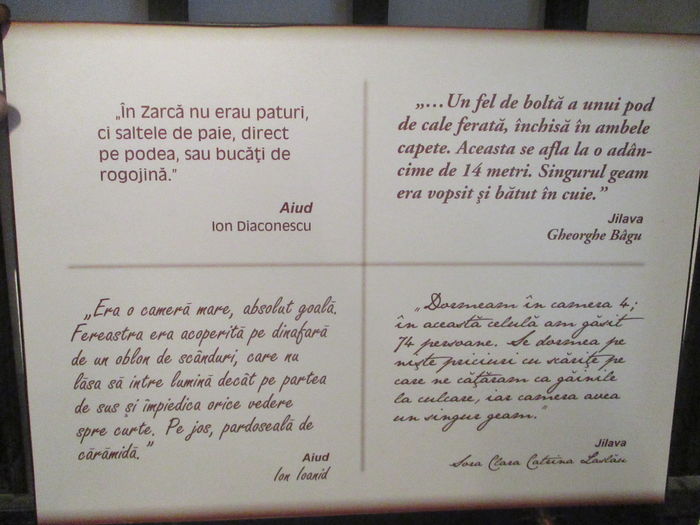 „În Zarcă nu erau paturi,
ci saltele de paie, direct
pe podea, sau bucăți de
rogojină.”
Aiud
Ion Diaconescu
„...Un fel de boltă a unui pod
de cale ferată, închisă în ambele
capete. Aceasta se afla la o adân-
cime de 14 metri. Singurul geam
era vopsit şi bătut în cuie.”
Jilava
Gheorghe Bâgu
„Era o cameră mare, absolut goală.
Fereastra era acoperită pe dinafară
de un oblon de scânduri, care nu
lăsa să intre lumină decât pe partea
de sus şi împiedica orice vedere
spre curte. Pe jos, pardoseală de
cărămidă.”
Aiud
Ion Ioanid
„Dormeam în camera 4;
în această celulă am găsit
74 persoane. Se dormea pe
nişte priciuri cu scărițe pe
care ne cățăram ca găinile
la culcare, iar camera avea
un singur geam.”
Jilava
Sora Clara Catrina Laslău